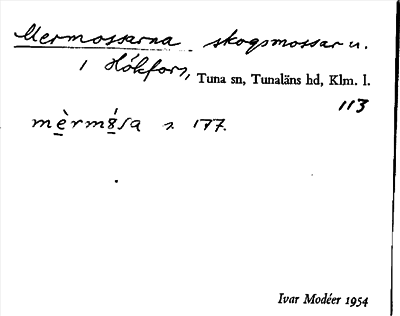 Mermossarna skogsmossar u.
1 Hökfors, Tuna sn, Tunaläns hd, Klm. l.
113
mèrmósa s. 177.
Ivar Modéer 1954